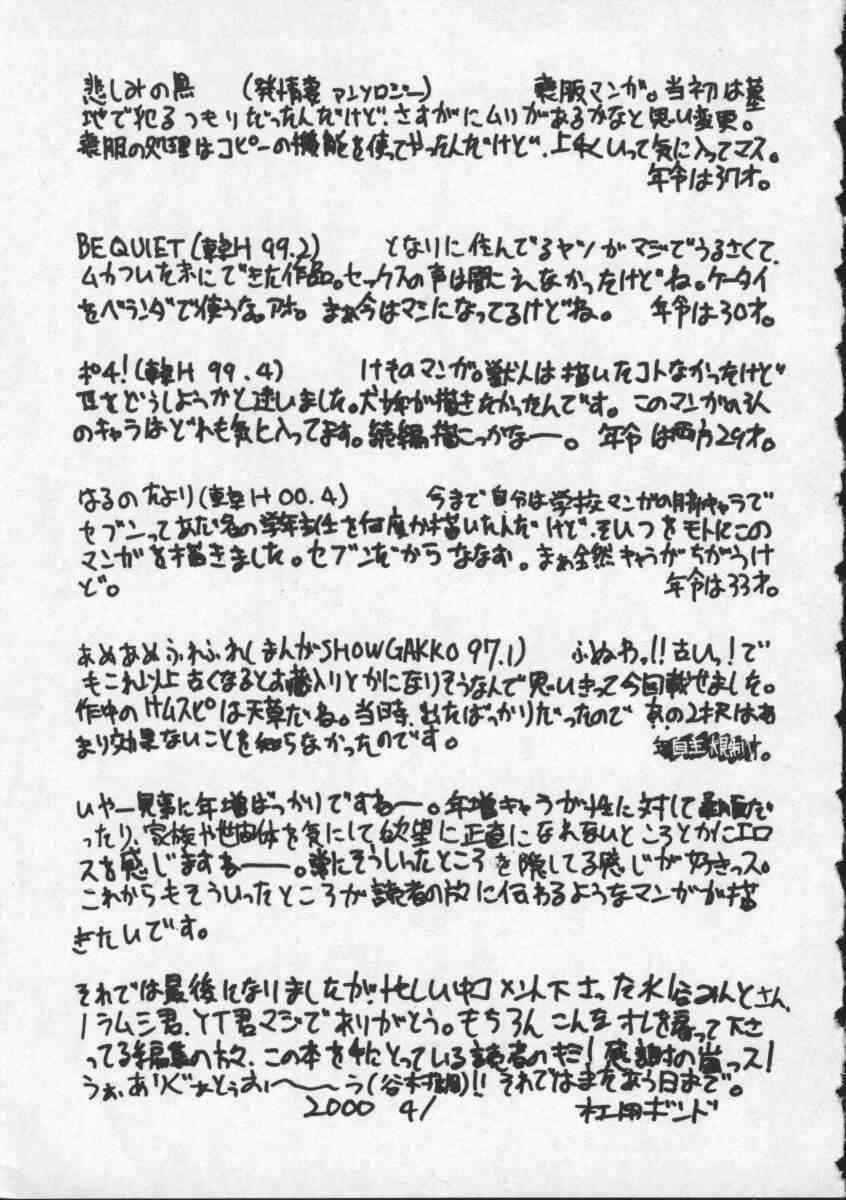 悲しみの黒 (発情妻 アンソロジー) 喪服マンガ。当初は墓
地で犯るつもりだったんだけど、さすがにムリがあるかなと思い変更。
喪服の処理はコピーの機能を使ってやったんだけど、上手くいって気に入ってマス。
年令は37才。
BE QUIET (H 99.2) となりに住んでるヤツがマジでうるさくて、
ムカついた末にできた作品。セックスの声は聞こえなかったけどね。ケータイ
をベランダで使うな。アホ。まぁ今はマンになってるけどね。 年令は30才。
ポチ!(H 99.4) けものマンガ。獣人は描いたコトなかったけど
をどうしようかと迷いました。犬少年が描きたかったんです。このマンガの3人
のキャラはどれも気に入ってます。続編描こっかなー。 年令は両方29才。
はるのたより(H 00.4) 今まで自分は学校マンガの脇キャラで
セブンってあだ名の学年主任を何度か描いたんだけど、そいつをモトにこの
マンガを描きました。セブンだからななお。まぁ全然キャラがちがうけ
ど。 年令は33才。
あめあめふれふれ(まんがSHOWGAKKO 97.1) ふぬわっ!!古いっ!で
もこれ以上古くなるとお蔵入りとかになりそうなんで思いきって今回載せました。
作中のサムスピは天草だね。当時、出たばっかりだったので あの2択はあ
まり効果ないことを知らなかったのです。 年
いやー見事に年増ばっかりですねー。年増キャラが性に対してだ
ったり、家族や世間体を気にして欲望に正直になれないところとかにエロ
スを感じますねー。常にそういったところを隠してる感じが好きっス。
これからもそういったところが読者の方々に伝わるようなマンガが描
きたいです。
それでは最後になりましたが、忙しい中コメント下さった水谷みんとさん、
ノラムシ君、YT君マジでありがとう。もちろんこんなオレを雇って下さ
ってる編集の方々、この本を手にとっている読者のキミ!感謝の嵐っス!
うぉ、ありぐぁとぅおぃ〜〜う(谷村)!!それではまたあう日まで。
2000 4/ 杜拝ギンド